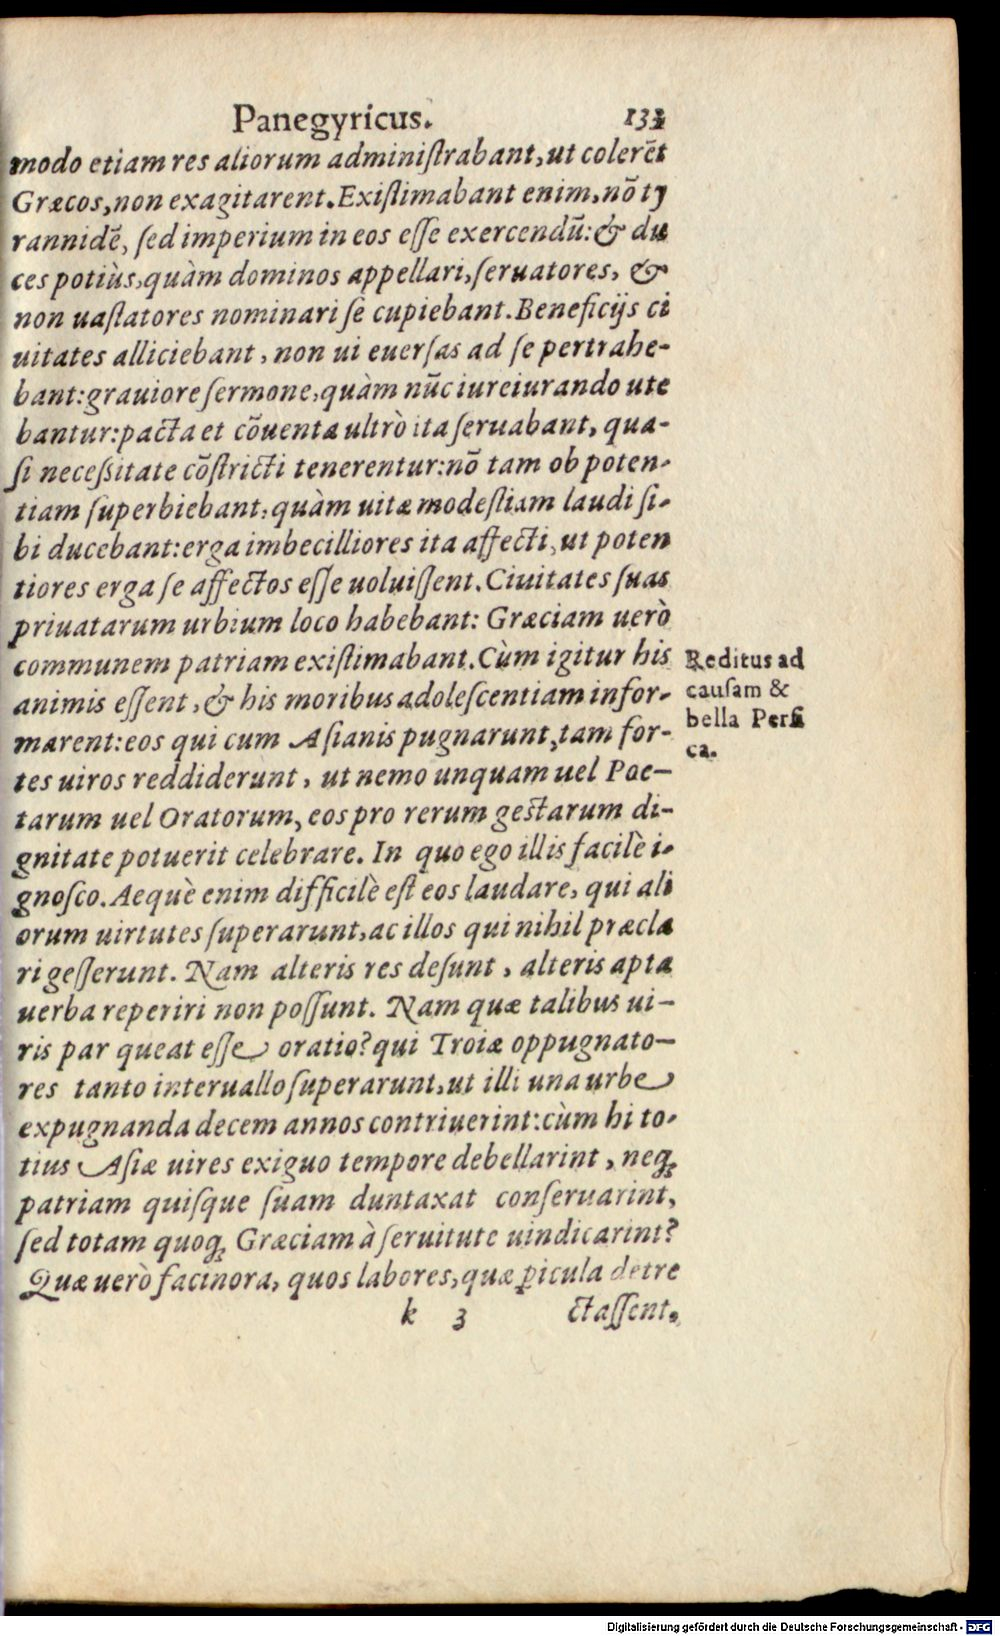 Panegyricus. 133
modo etiam res aliorum adminiſtrabant, ut colerēt
Græcos, non exagitarent. Exiſtimabant enim, nō ty
rannidē, ſed imperium in eos eſſe exercendū: & du
ces potiùs, quàm dominos appellari, ſeruatores, &
non uaſtatores nominari ſe cupiebant. Beneficijs ci
uitates alliciebant, non ui euerſas ad ſe pertrahe-
bant: grauiore ſermone, quàm nūc iureiurando ute
bantur: pacta et cōuenta ultrò ita ſeruabant, qua-
ſi neceſſitate cōſtricti tenerentur: nō tam ob poten-
tiam ſuperbiebant, quàm uitæ modeſtiam laudi ſi-
bi ducebant: erga imbecilliores ita affecti, ut poten
tiores erga ſe affectos eſſe uoluiſſent. Ciuitates ſuas
priuatarum urbium loco habebant: Græciam uerò
communem patriam exiſtimabant. Cùm igitur his
animis eſſent, & his moribus adoleſcentiam infor-
marent: eos qui cum Aſianis pugnarunt, tam for-
tes uiros reddiderunt, ut nemo unquam uel Poe-
tarum uel Oratorum, eos pro rerum geſtarum di-
gnitate potuerit celebrare. In quo ego illis facilè i-
gnoſco. Aequè enim difficilè eſt eos laudare, qui ali
orum uirtutes ſuperarunt, ac illos qui nihil præcla
ri geſſerunt. Nam alteris res deſunt, alteris apta
uerba reperiri non poſſunt. Nam quæ talibus ui-
ris par queat eſſe oratio? qui Troiæ oppugnato-
res tanto interuallo ſuperarunt, ut illi una urbe
expugnanda decem annos contriuerint: cùm hi to-
tius Aſiæ uires exiguo tempore debellarint, neq́;
patriam quiſque ſuam duntaxat conſeruarint,
ſed totam quoq́; Græciam à ſeruitute uindicarint?
Quæ uerò facinora, quos labores, quæ ꝑicula detre
k 3 ctaſſent.
Reditus ad
cauſam &
bella Perſi
ca.
Digitalisierung gefördert durch die Deutsche Forschungsgemeinschaft - DFG